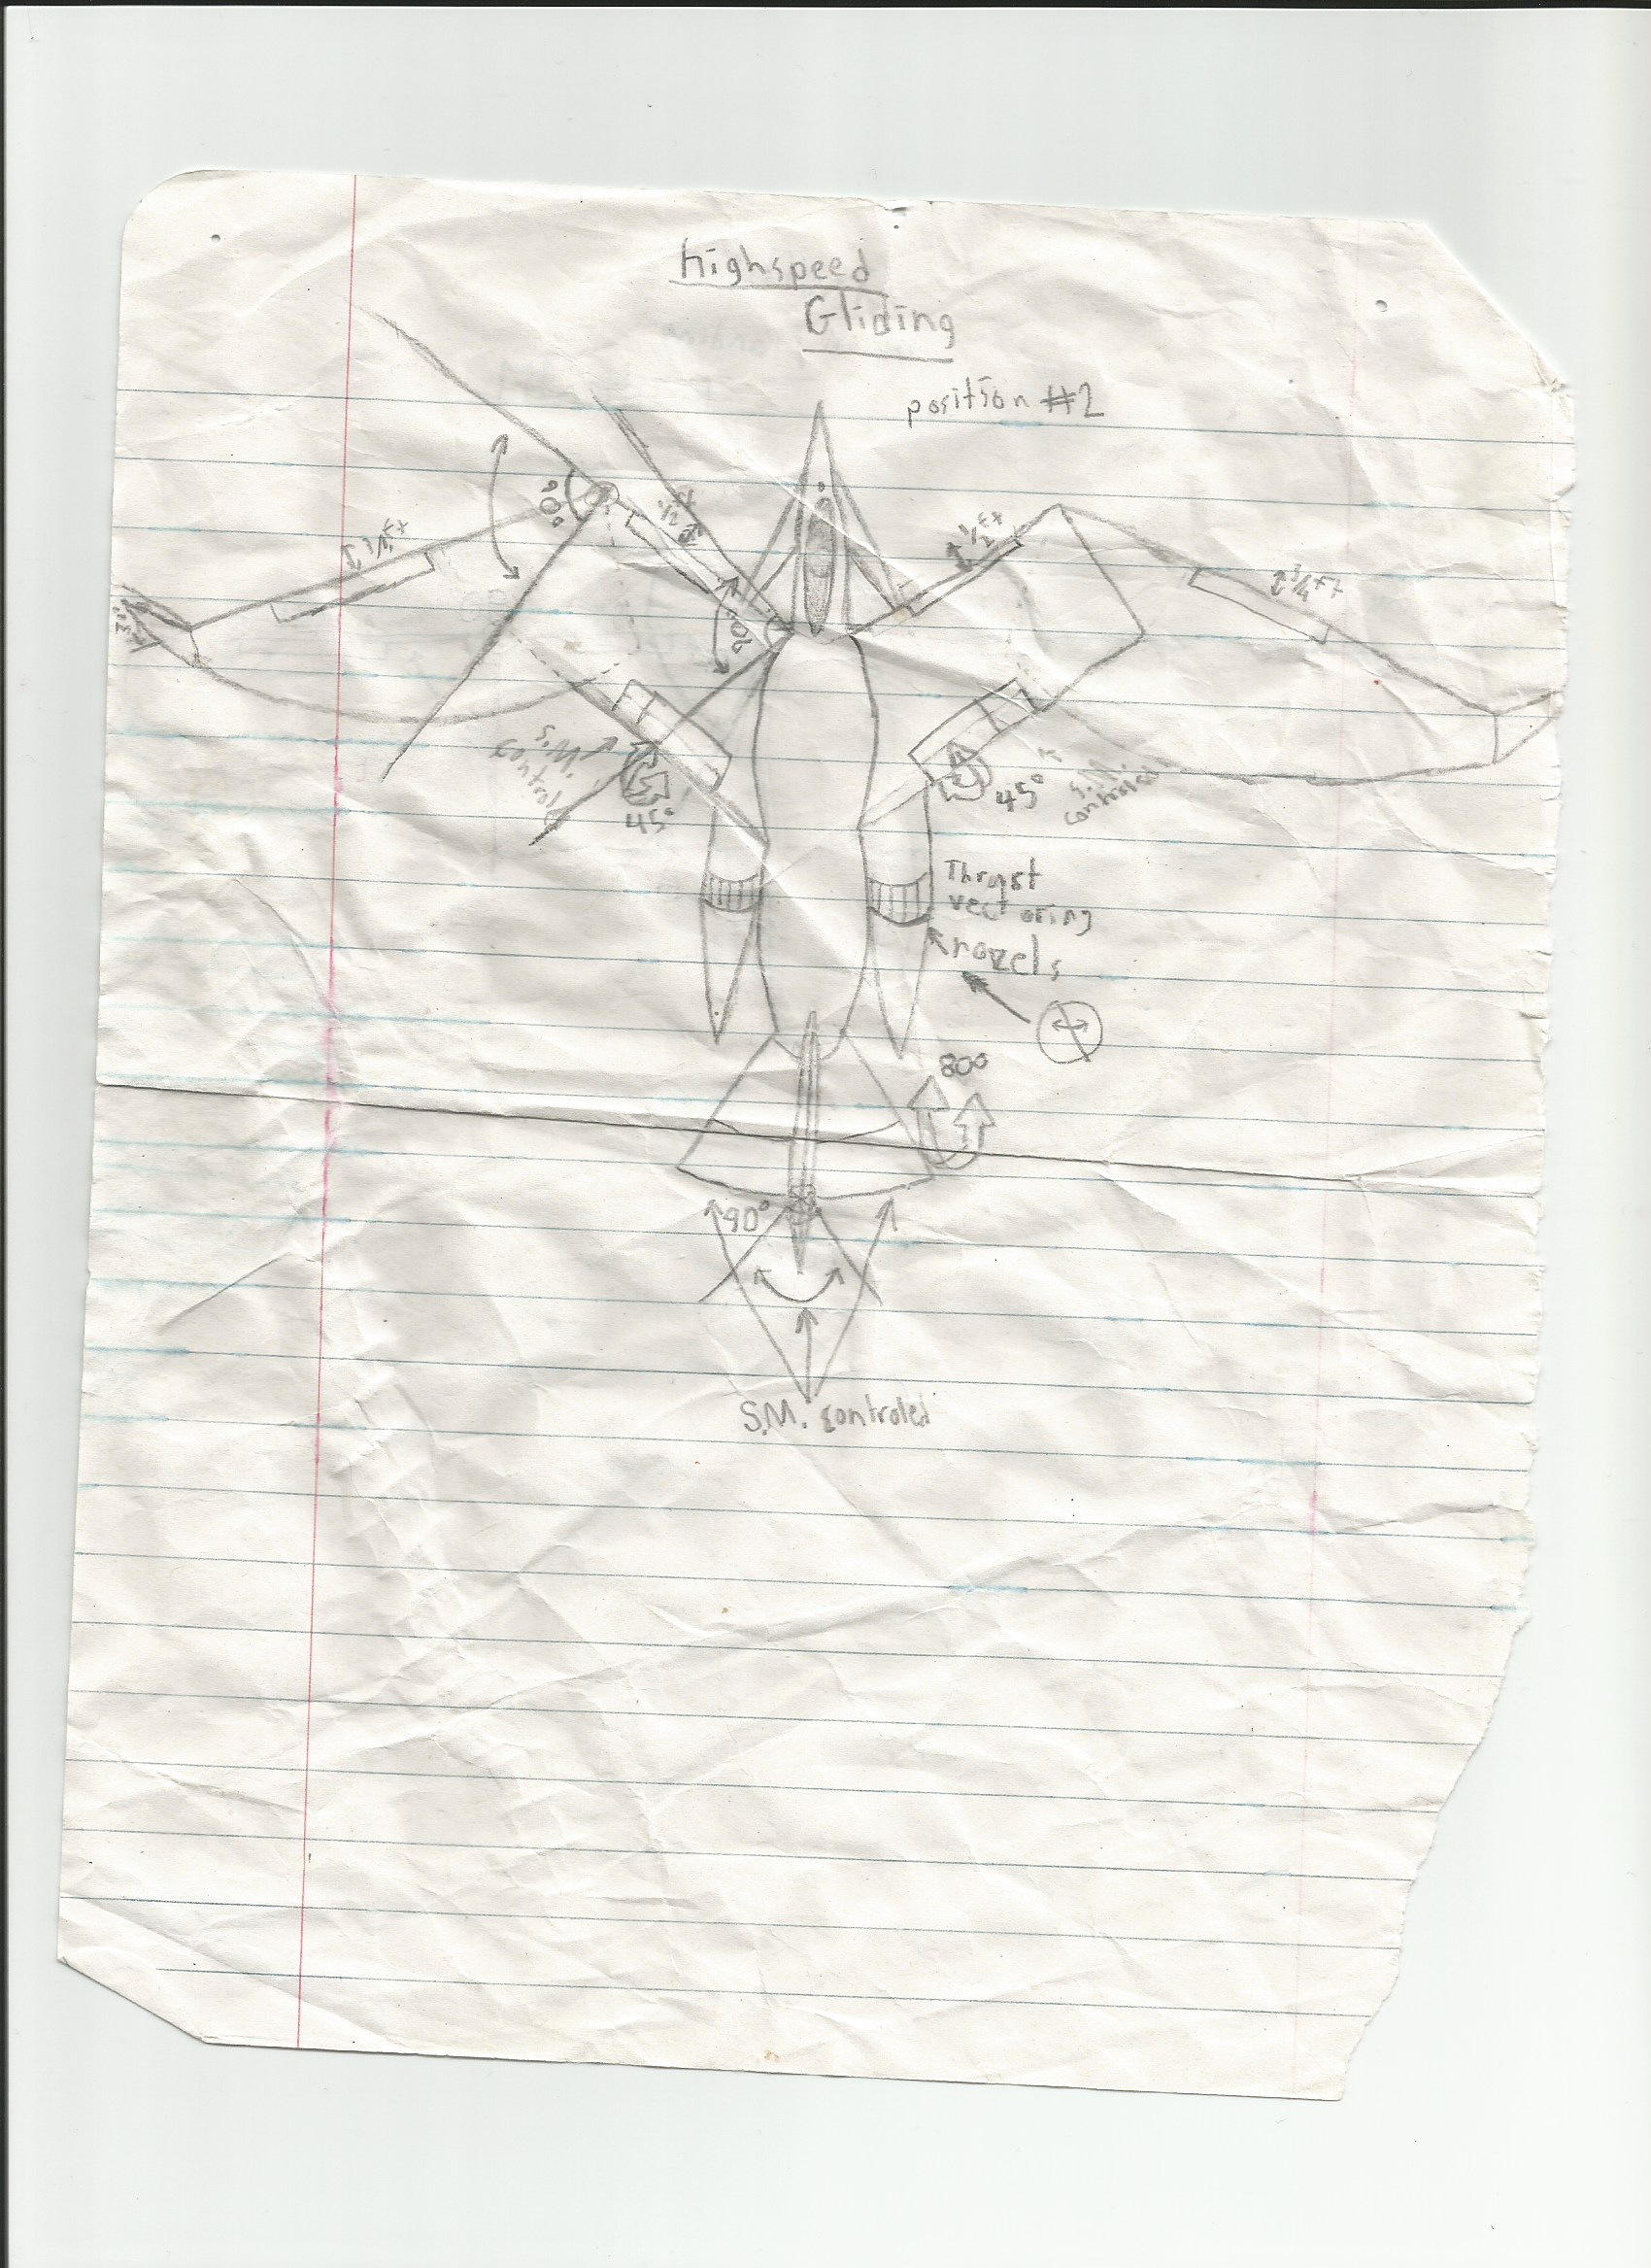 highspeed
Gliding
position #2
90°
1/2 ft
1/2 ft
1/4 ft
3/4 ft
90°
S.M.
control
45°
45°
S.M.
controled
Thrust
vectoring
nozels
800
90°
S.M. controled